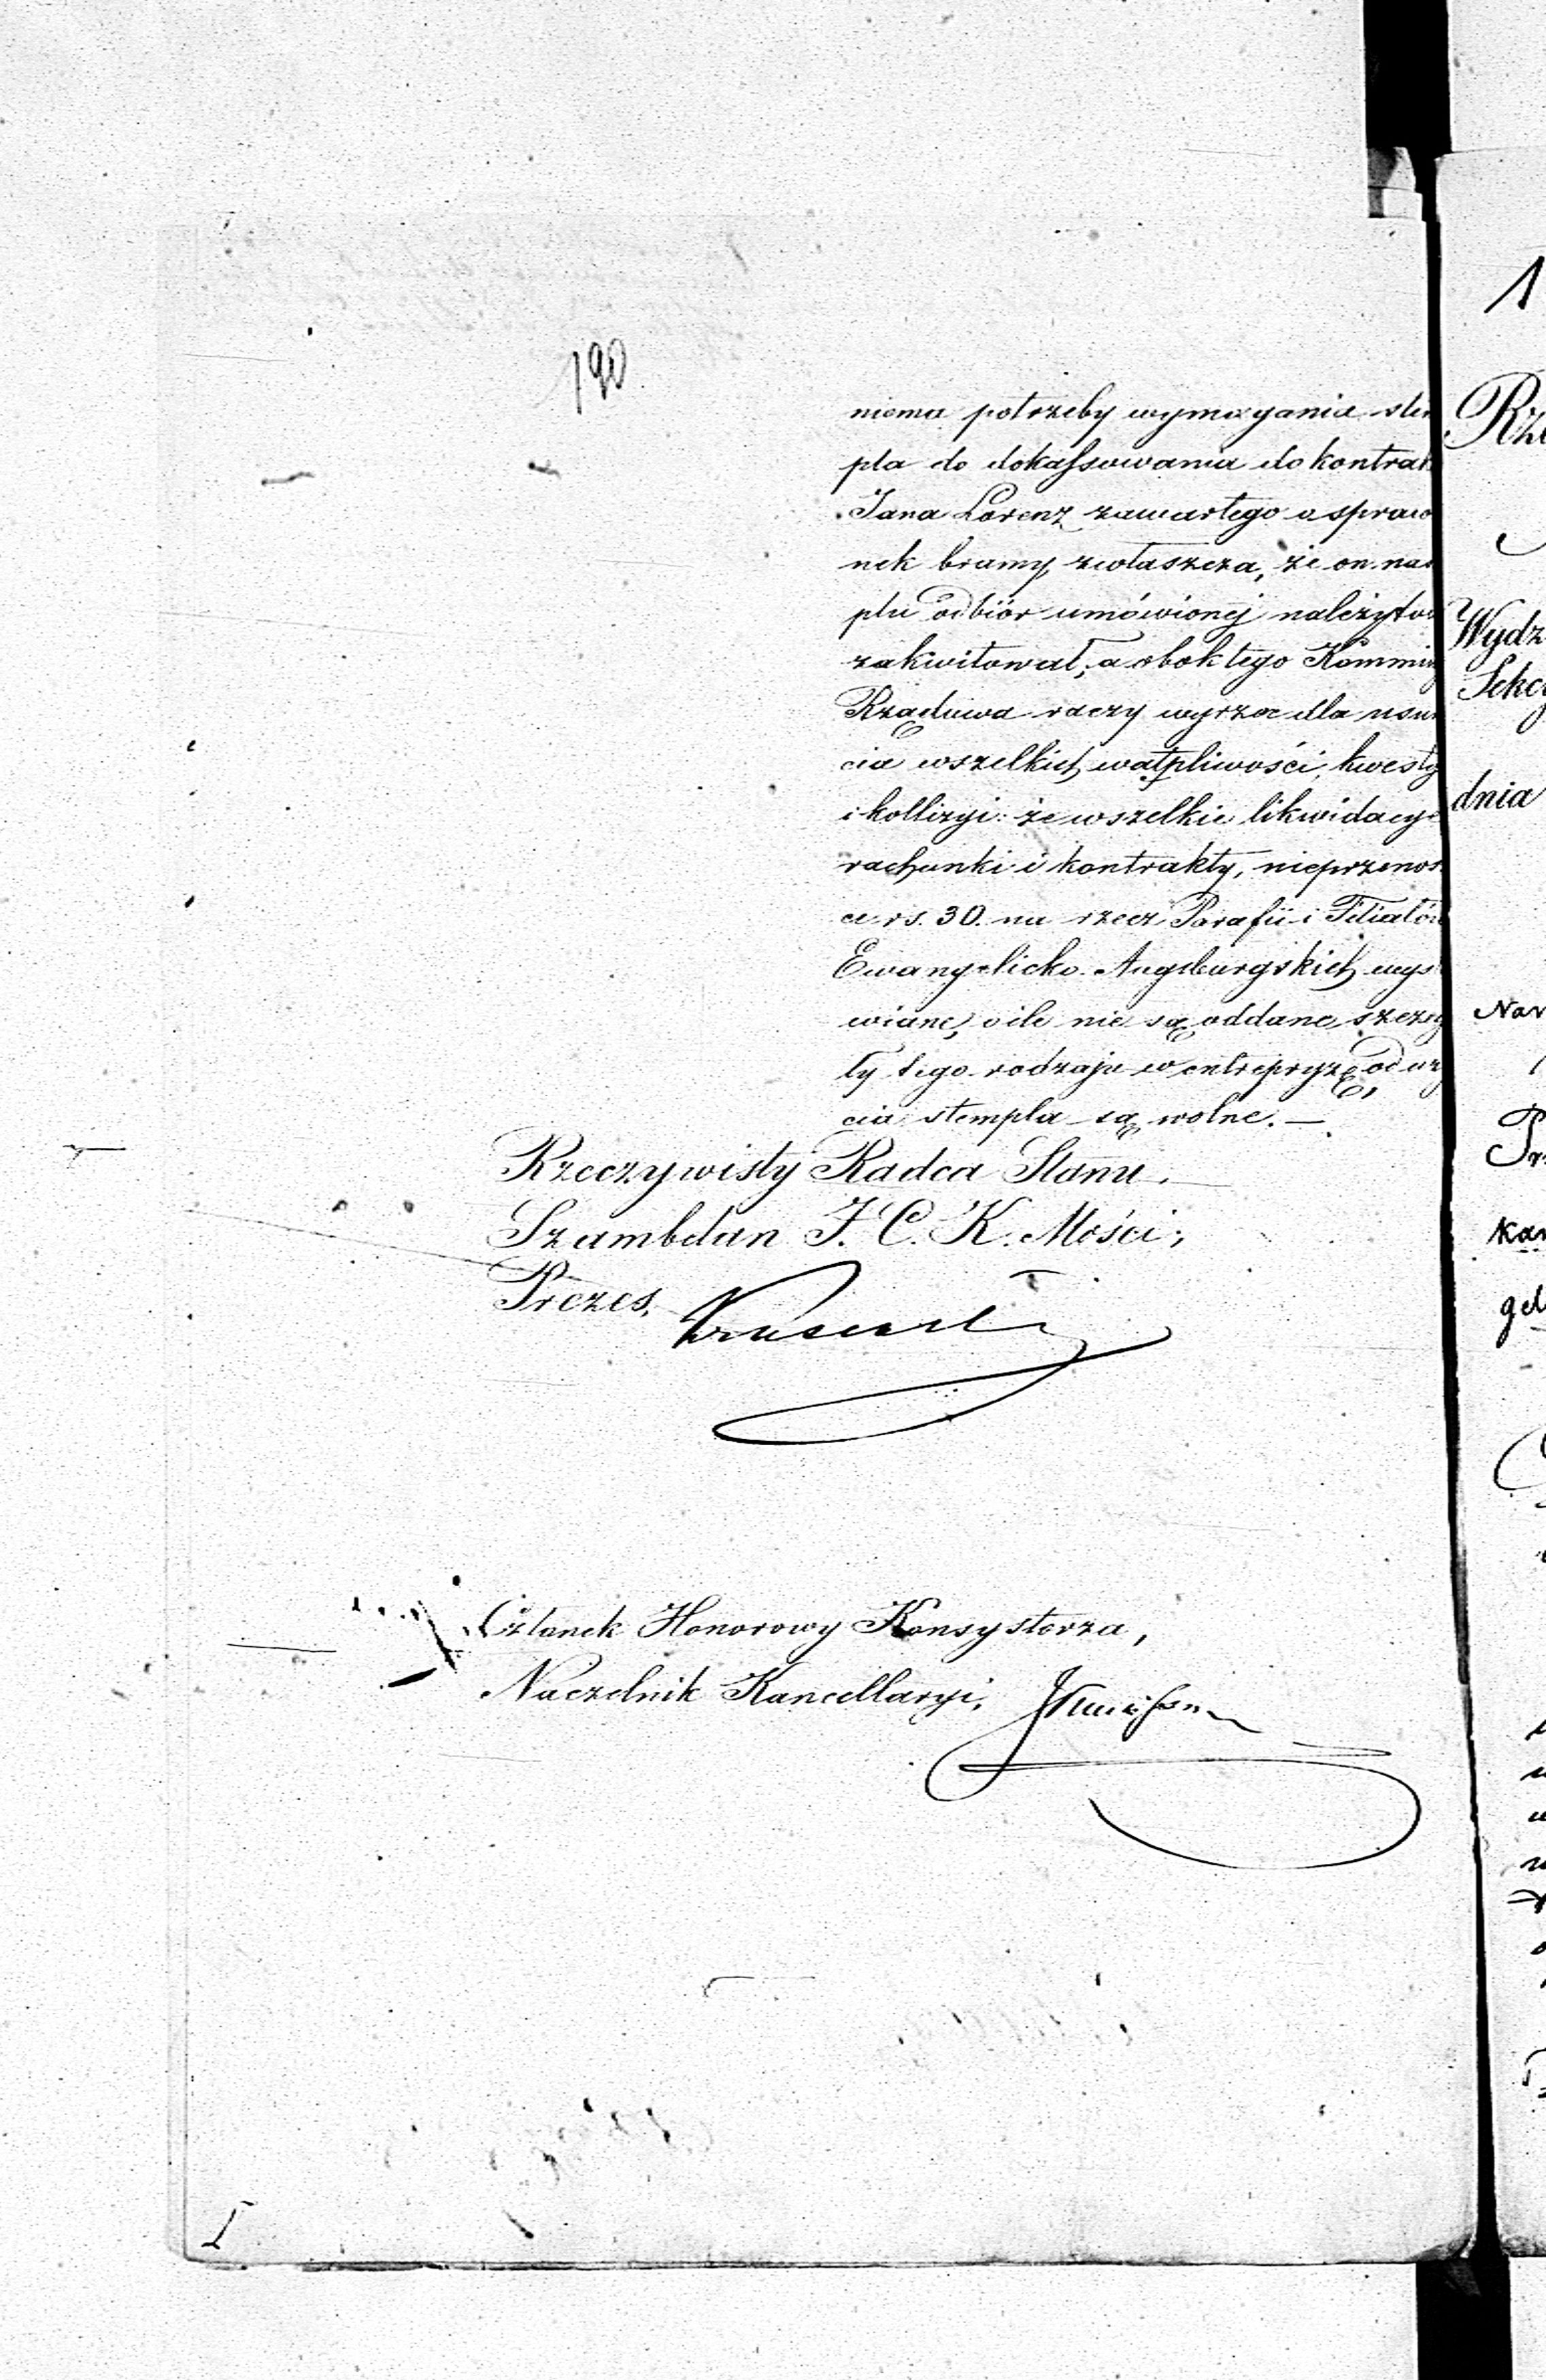 190
niema potrzeby wymagania stem
pla do dokassowania do kontrak
Jana Lorenz zawartego o spraw
nek bramy, zwłaszcza, że on na
plu odbiór umówionej należytoś
zakwitował; a obok tego Kommis
Rządowa raczy wyrzec dla usun
cia wszelkich wątpliwości, kwesty
i kollizyi: że wszelkie likwidacye
rachunki i kontrakty, nieprzenos
ce rs. 30. na rzecz Parafii i Filiałów
Ewangelicko-Augsburgskich wys
wiane, o ile nie są oddane szczeg
ty tego rodzaju w entrepryzę, od uży
cia stempla są wolne. —
Rzeczywisty Radca Stanu,
Szambelan J. C. K. Mości;
Prezes,
Członek Honorowy Konsystorza,
Naczelnik Kancellaryi,
I
1
Rzą
Wydz
Sekcy
dnia